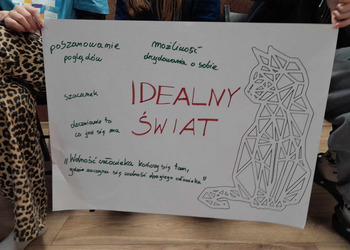 poszanowanie
poglądów
możliwość
decydowania o sobie
szacunek
IDEALNY
ŚWIAT
docenianie to
co już się ma
"Wolność człowieka kończy się tam,
gdzie zaczyna się wolność drugiego człowieka"